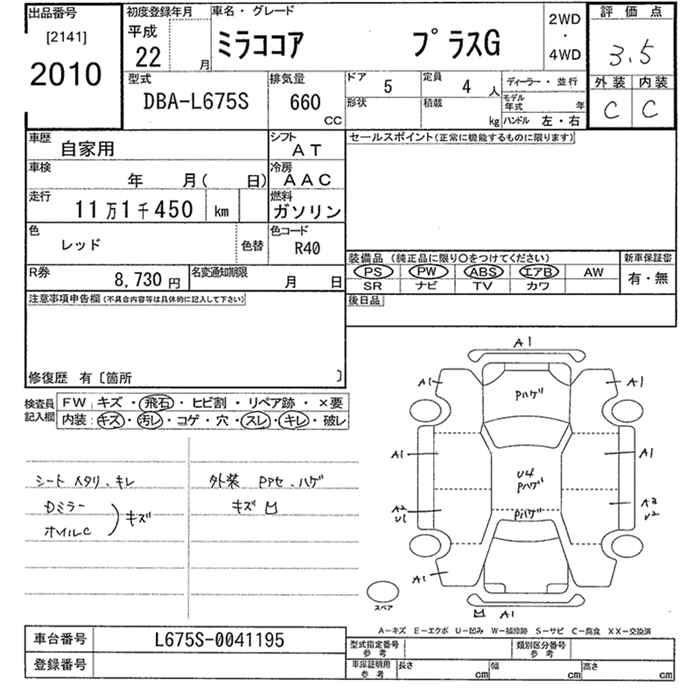 出品番号
[2141]
2010
初度登録年月
平成
22
月
車名・グレード
ミラココア プラスG
2WD
・
4WD
評価点
3.5
外装 内装
C C
型式
DBA-L675S
排気量
660
CC
ドア
5
定員
4 人
ディーラー・並行
形状
積載
kg
モデル年式
年
ハンドル 左・右
車歴
自家用
シフト
AT
車検
年 月( 日)
冷房
AAC
走行
11万1千450 km
燃料
ガソリン
色
レッド
色替
色コード
R40
R券
8,730 円
名変通知期限
月 日
セールスポイント(正常に機能するものに限ります)
装備品 (純正品に限り○をつけてください)
PS PW ABS エアB AW
SR ナビ TV カワ
新車保証書
有・無
後日品
注意事項申告欄(不具合内容等は具体的に記入して下さい)
修復歴 有〔箇所 〕
検査員
記入欄
FW キズ・飛石・ヒビ割・リペア跡・×要
内装:キズ・汚レ・コゲ・穴・スレ・キレ・破レ
シート ヘタリ、キレ
Dミラー
ホイルC
キズ
外装 PPセ、ハゲ
キズ 凹
A1
A1
Pハゲ
A1
A1
U4
Pハゲ
A1
A2
U1
Pハゲ
A2
U2
A1
A1
凹 A1
スペア
A-キズ E-エクボ U-凹み W-補修跡 S-サビ C-腐食 XX-交換済
車台番号
L675S-0041195
登録番号
型式指定番号
参考
類別区分番号
参考
車庫証明用
参考
長さ
cm
幅
cm
高さ
cm